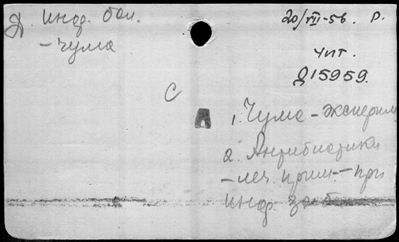 Д инф. бол.
- чума
20/VII-56. Р.
Чит.
Д15959.
С
1. Чума - эксперим
2. Антибиотики
- леч. прим. - при
инф. заб